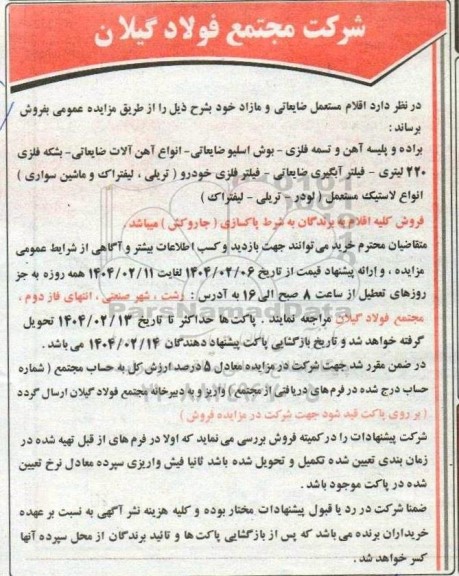 شرکت مجتمع فولاد گیلان
در نظر دارد اقلام مستعمل ضایعاتی و مازاد خود بشرح ذیل را از طریق مزایده عمومی بفروش
برساند :
براده و پلیسه آهن و تسمه فلزی - بوش اسلیو ضایعاتی- انواع آهن آلات ضایعاتی- بشکه فلزی
۲۲۰ لیتری - فیلتر آبگیری ضایعاتی - فیلتر فلزی خودرو ( تریلی ، لیفتراک و ماشین سواری )
انواع لاستیک مستعمل ( لودر - تریلی - لیفتراک )
فروش کلیه اقلام به برندگان به شرط پاکسازی ( جاروکش ) میباشد.
متقاضیان محترم خرید می توانند جهت بازدید و کسب اطلاعات بیشتر و آگاهی از شرایط عمومی
مزایده ، و ارائه پیشنهاد قیمت از تاریخ ۱۴۰۴/۰۲/۰۶ لغایت ۱۴۰۴/۰۲/۱۱ همه روزه به جز
روزهای تعطیل از ساعت ۸ صبح الی ۱۶ به آدرس : رشت ، شهر صنعتی ، انتهای فاز دوم ،
مجتمع فولاد گیلان مراجعه نمایند . پاکت ها حداکثر تا تاریخ ۱۴۰۴/۰۲/۱۳ تحویل
گرفته خواهد شد و تاریخ بازگشایی پاکت پیشنهاد دهندگان ۱۴۰۴/۰۲/۱۴ می باشد .
در ضمن مقرر شد جهت شرکت در مزایده معادل ۵ درصد ارزش کل به حساب مجتمع ( شماره
حساب درج شده در فرم های دریافتی از مجتمع ) واریز و به دبیرخانه مجتمع فولاد گیلان ارسال گردد
( بر روی پاکت قید شود جهت شرکت در مزایده فروش )
شرکت پیشنهادات را در کمیته فروش بررسی می نماید که اولا در فرم های از قبل تهیه شده در
زمان بندی تعیین شده تکمیل و تحویل شده باشد ثانیا فیش واریزی سپرده معادل نرخ تعیین
شده در پاکت موجود باشد .
ضمنا شرکت در رد یا قبول پیشنهادات مختار بوده و کلیه هزینه نشر آگهی به نسبت بر عهده
خریداران برنده می باشد که پس از بازگشایی پاکت ها و تائید برندگان از محل سپرده آنها
کسر خواهد شد .
ParsNamadData